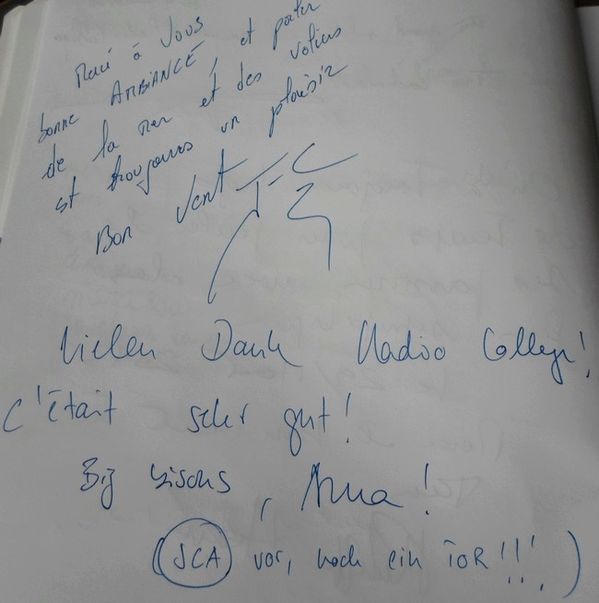 Merci à Vous
bonne AMBIANCE, et parler
de la mer et des voiliers
est toujours un plaisir
Bon Vent
Vielen Dank Radio College!
C'était sehr gut!
Big bisous, Anna!
(SCA) vor, noch ein ToR!!!)